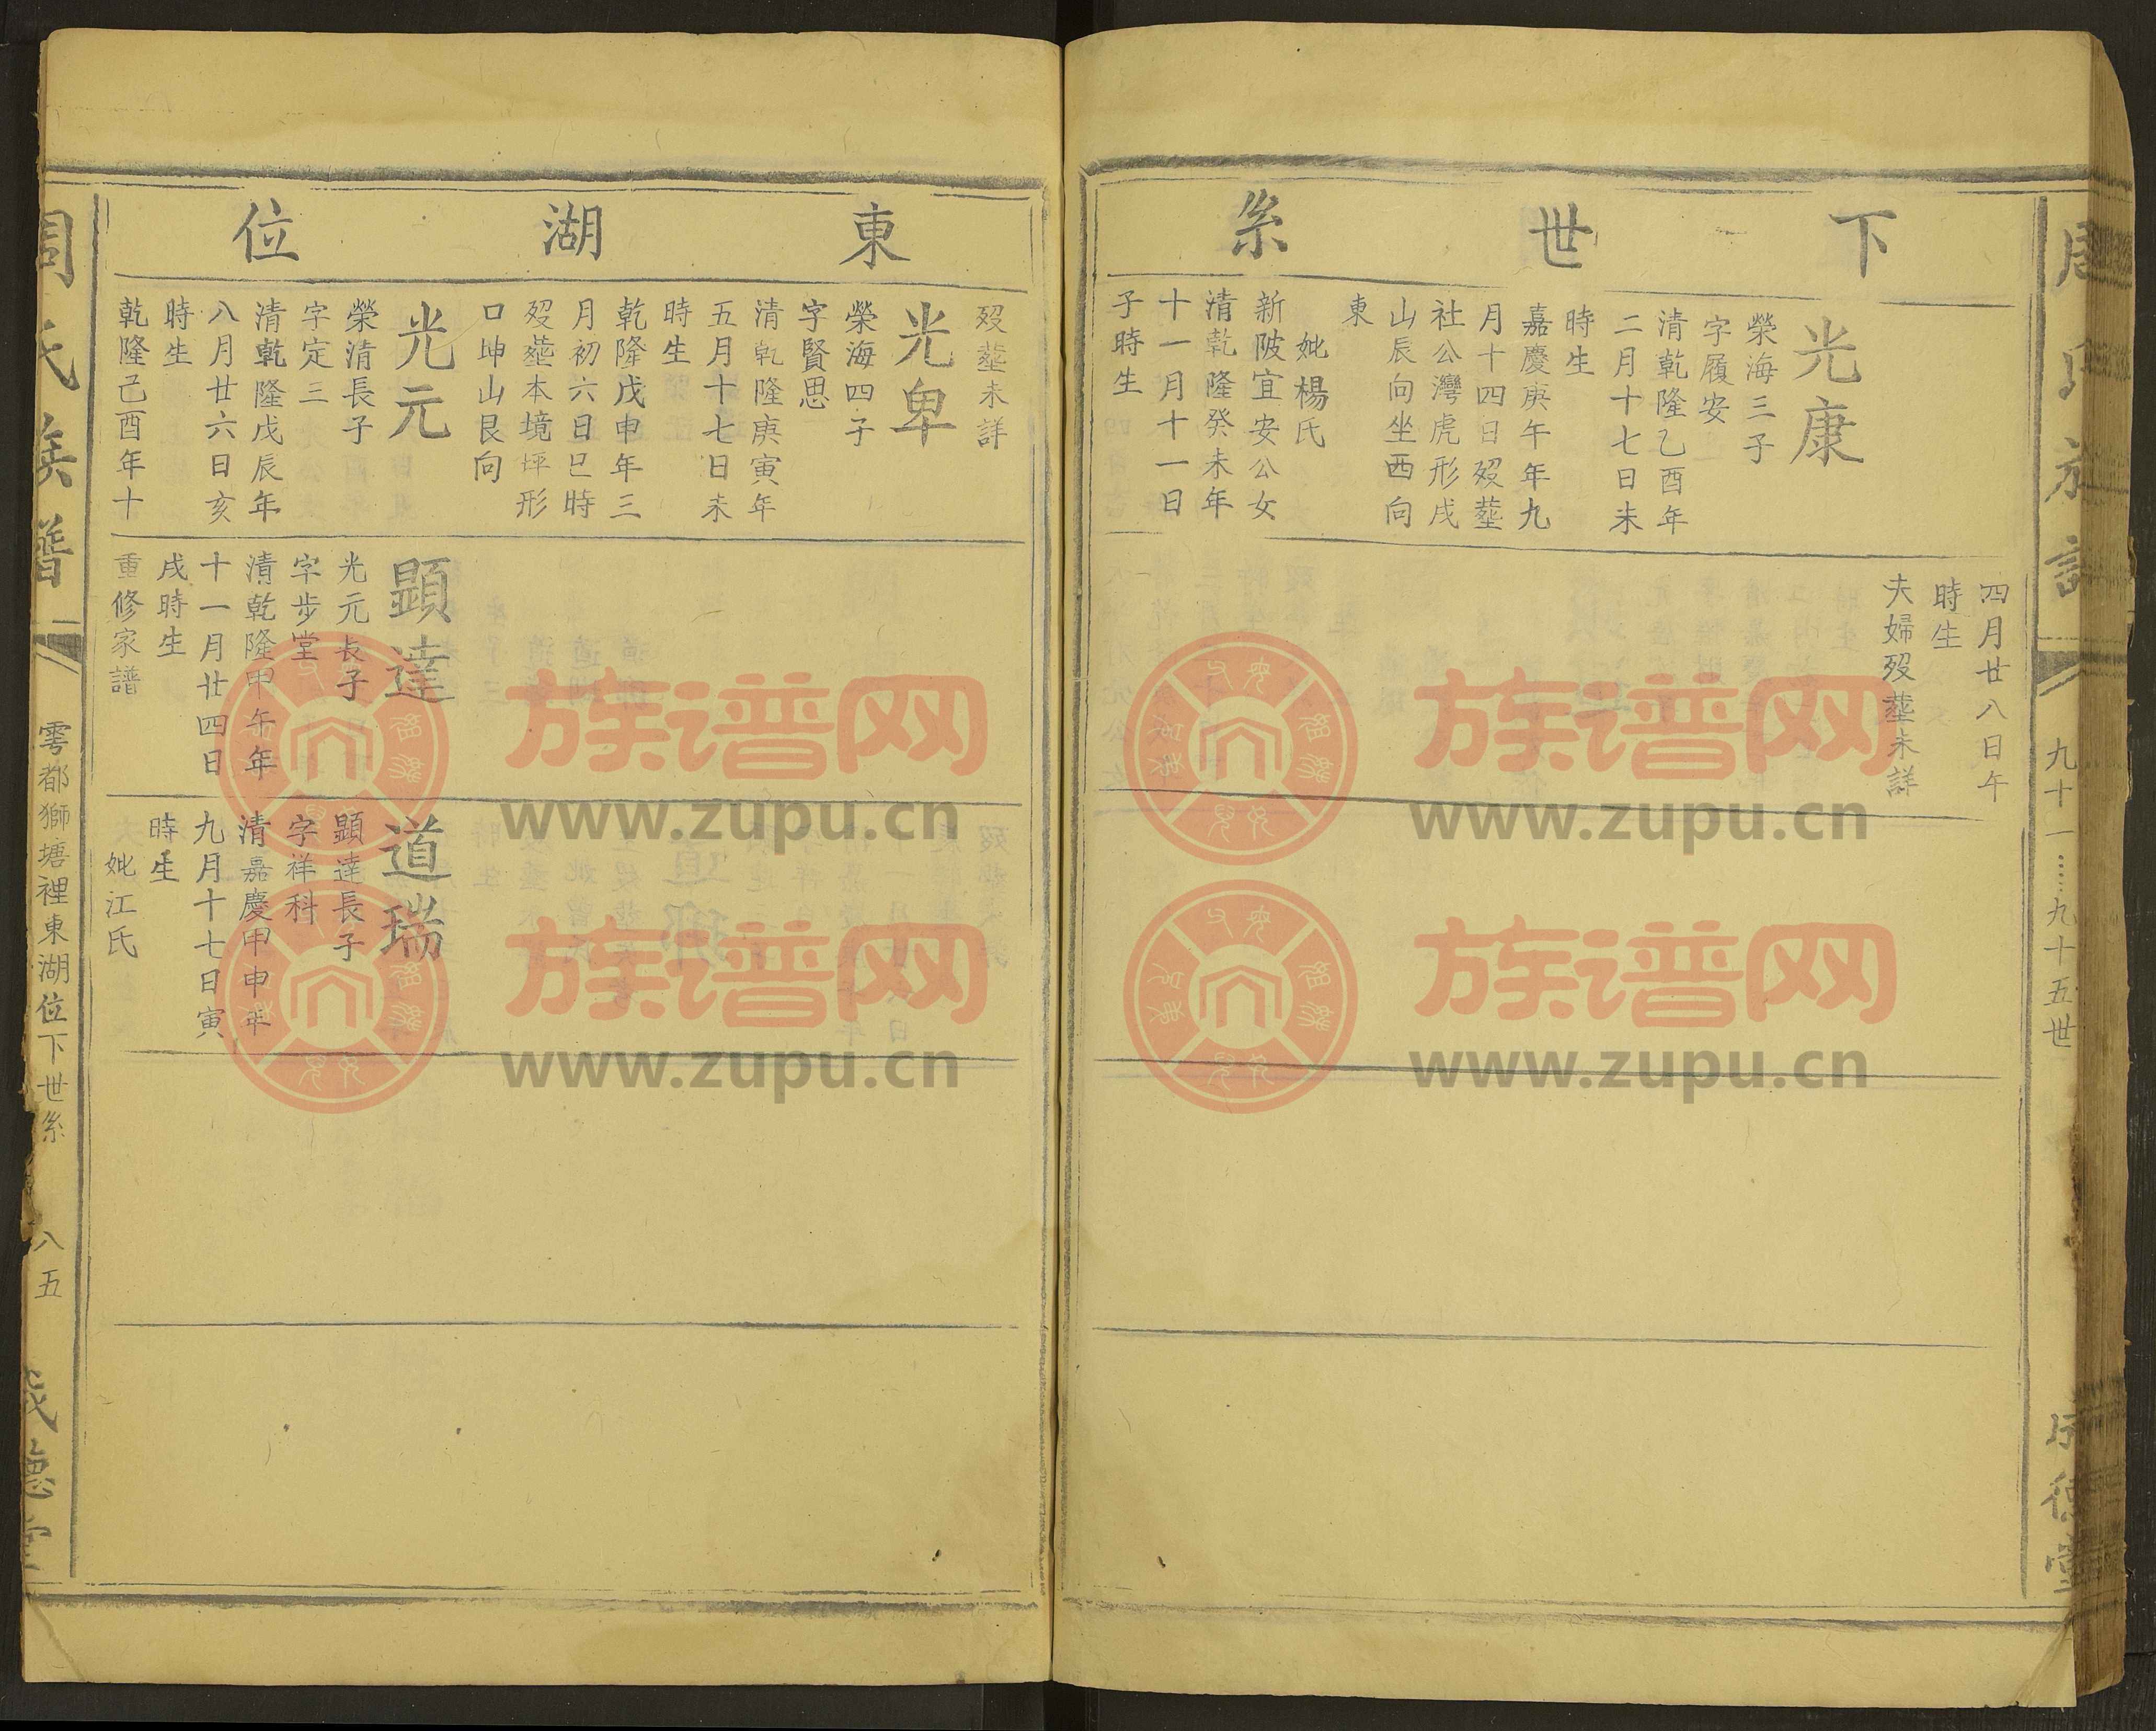 下世系
光康
榮海三子
字履安
清乾隆乙酉年
二月十七日未
時生
嘉慶庚午年九
月十四日歿塟
社公灣虎形戌
山辰向坐西向
東
妣楊氏
新陂宜安公女
清乾隆癸未年
十一月十一日
子時生
四月廿八日午
時生
夫婦歿塟未詳
九十一……九十五世
東湖位
歿塟未詳
光卑
榮海四子
字賢思
清乾隆庚寅年
五月十七日未
時生
乾隆戊申年三
月初六日巳時
歿塟本境坪形
口坤山艮向
光元
榮清長子
字定三
清乾隆戊辰年
八月廿六日亥
時生
乾隆己酉年十
顕達
光元長子
字步堂
清乾隆甲午年
十一月廿四日
戌時生
重修家譜
道瑞
顕達長子
字祥科
清嘉慶甲申年
九月十七日寅
時生
妣江氏
周氏族譜
雩都獅塘裡東湖位下世系
八五
族谱网
www.zupu.cn
族谱网
www.zupu.cn
族谱网
www.zupu.cn
族谱网
www.zupu.cn